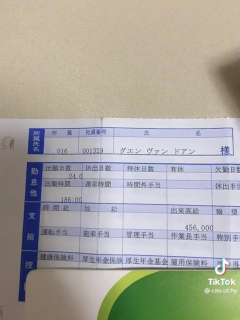 所属氏名 所属 社員番号 氏名
016 001329 グエン ヴァン ドアン 様
勤怠他 出勤日数 休出日数 特休日数 有休 欠勤日数
24.0
出勤時間 遅早時間 時間外手当 休出手当
186:00
支給 時間給 加給 出来高給 報奨
456,000
運転手当 皆率手当 管理手当 作業長手当 特別手
控 健康保険料 厚生年金保険 厚生年金基金 雇用保険料
TikTok
@cau.ut.hy